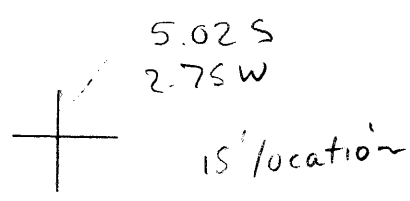 5.02 S
2.75 W
15' location